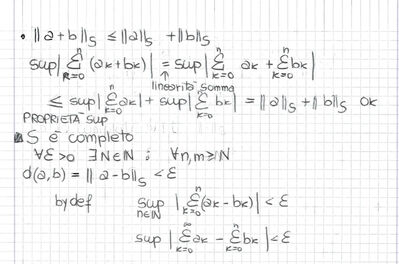 • ||a+b||s ≤ ||a||s + ||b||s
sup|Σ^n_{k=0} (ak+bk)| = sup|Σ^n_{k=0} ak + Σ^n_{k=0} bk|
↑ linearità somma
≤ sup|Σ^n_{k=0} ak| + sup|Σ^n_{k=0} bk| = ||a||s + ||b||s ok
PROPRIETÀ sup
S è completo
∀ε>0 ∃N∈ℕ : ∀n,m≥N
d(a,b) = ||a-b||s < ε
by def sup_{n∈ℕ} |Σ^n_{k=0} (ak-bk)| < ε
sup |Σ^∞_{k=0} ak - Σ^n_{k=0} bk| < ε